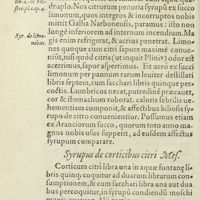 draplo. Nos citrorum penuria syrupũ ex succo
limonum, quos integros & incorruptos nobis
mittit Gallia Narbonensis, paramus : illo non
longè inferiorem ad internum incendium. Ma
gis enim refrigerat, & acrius penetrat. Limo=
Syr. de limo-
nibus.
nes quoque vt citri sapore maximè conue-
niunt, nisi quòd citrus (vt inquit Plinius) odore
præstat & aspernatur. Fit ergo ex succi
limonum per pannum rarum leuiter destillati
libris septem, cum sacchari libris quinque per=
coctis. Lumbricos necat, putredini præcauet,
cor & stomachum roborat. caloris ac bilis ve=
hementiam compescit, & affectibus biliosis sy=
rupo de citro conuenientior. Possumus etiam
ex Aranciorum succo, quorum toto anno ma-
gnus nobis vsus suppetit, ad eosdem affectus
syrupum comparare.
Syrupus de corticibus citri Mes.
Corticum citri libra vna in aquæ fontanæ li=
bris quinq; coquitur ad duarum librarum con=
sumptionem, & cum sacchari libra vna aut dua
bus percoquitur, in syrupi